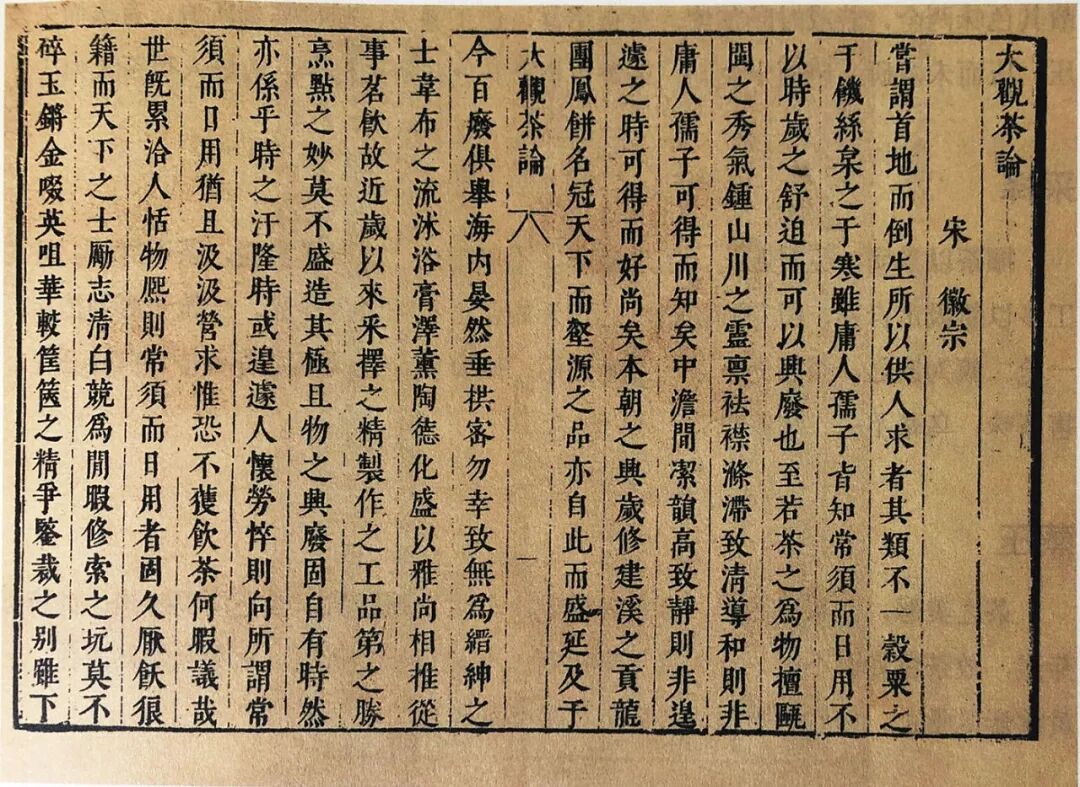 大觀茶論
宋徽宗
嘗謂首地而倒生所以供人求者其類不一穀粟之
于饑絲枲之于寒雖庸人孺子皆知常須而日用不
以時歲之舒迫而可以興廢也至若茶之為物擅甌
閩之秀氣鍾山川之靈稟祛襟滌滯致清導和則非
庸人孺子可得而知矣中澹間潔韻高致靜則非遑
遽之時可得而好尚矣本朝之興歲修建溪之貢龍
團鳳餅名冠天下而壑源之品亦自此而盛延及于
大觀茶論 一
今百廢俱舉海內晏然垂拱密勿幸致無為縉紳之
士韋布之流沐浴膏澤薰陶德化盛以雅尚相推從
事茗飲故近歲以來采擇之精製作之工品第之勝
烹點之妙莫不盛造其極且物之興廢固自有時然
亦係乎時之汙隆時或遑遽人懷勞悴則向所謂常
須而日用猶且汲汲營求惟恐不獲飲茶何暇議哉
世既累洽人恬物熙則常須而日用者固久厭飫狼
籍而天下之士勵志清白競為閒暇修索之玩莫不
碎玉鏘金啜英咀華較筐篋之精爭鑒裁之別雖下